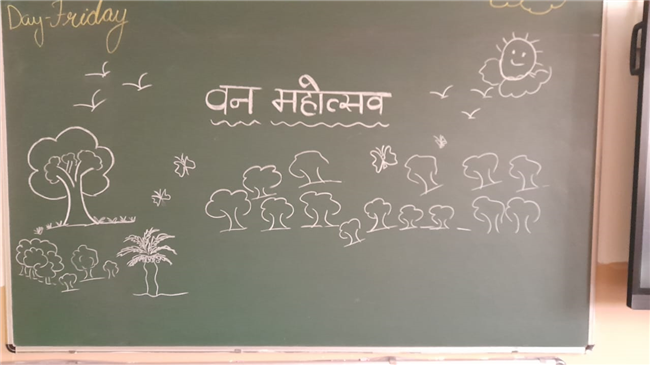 Day-Friday
वन महोत्सव